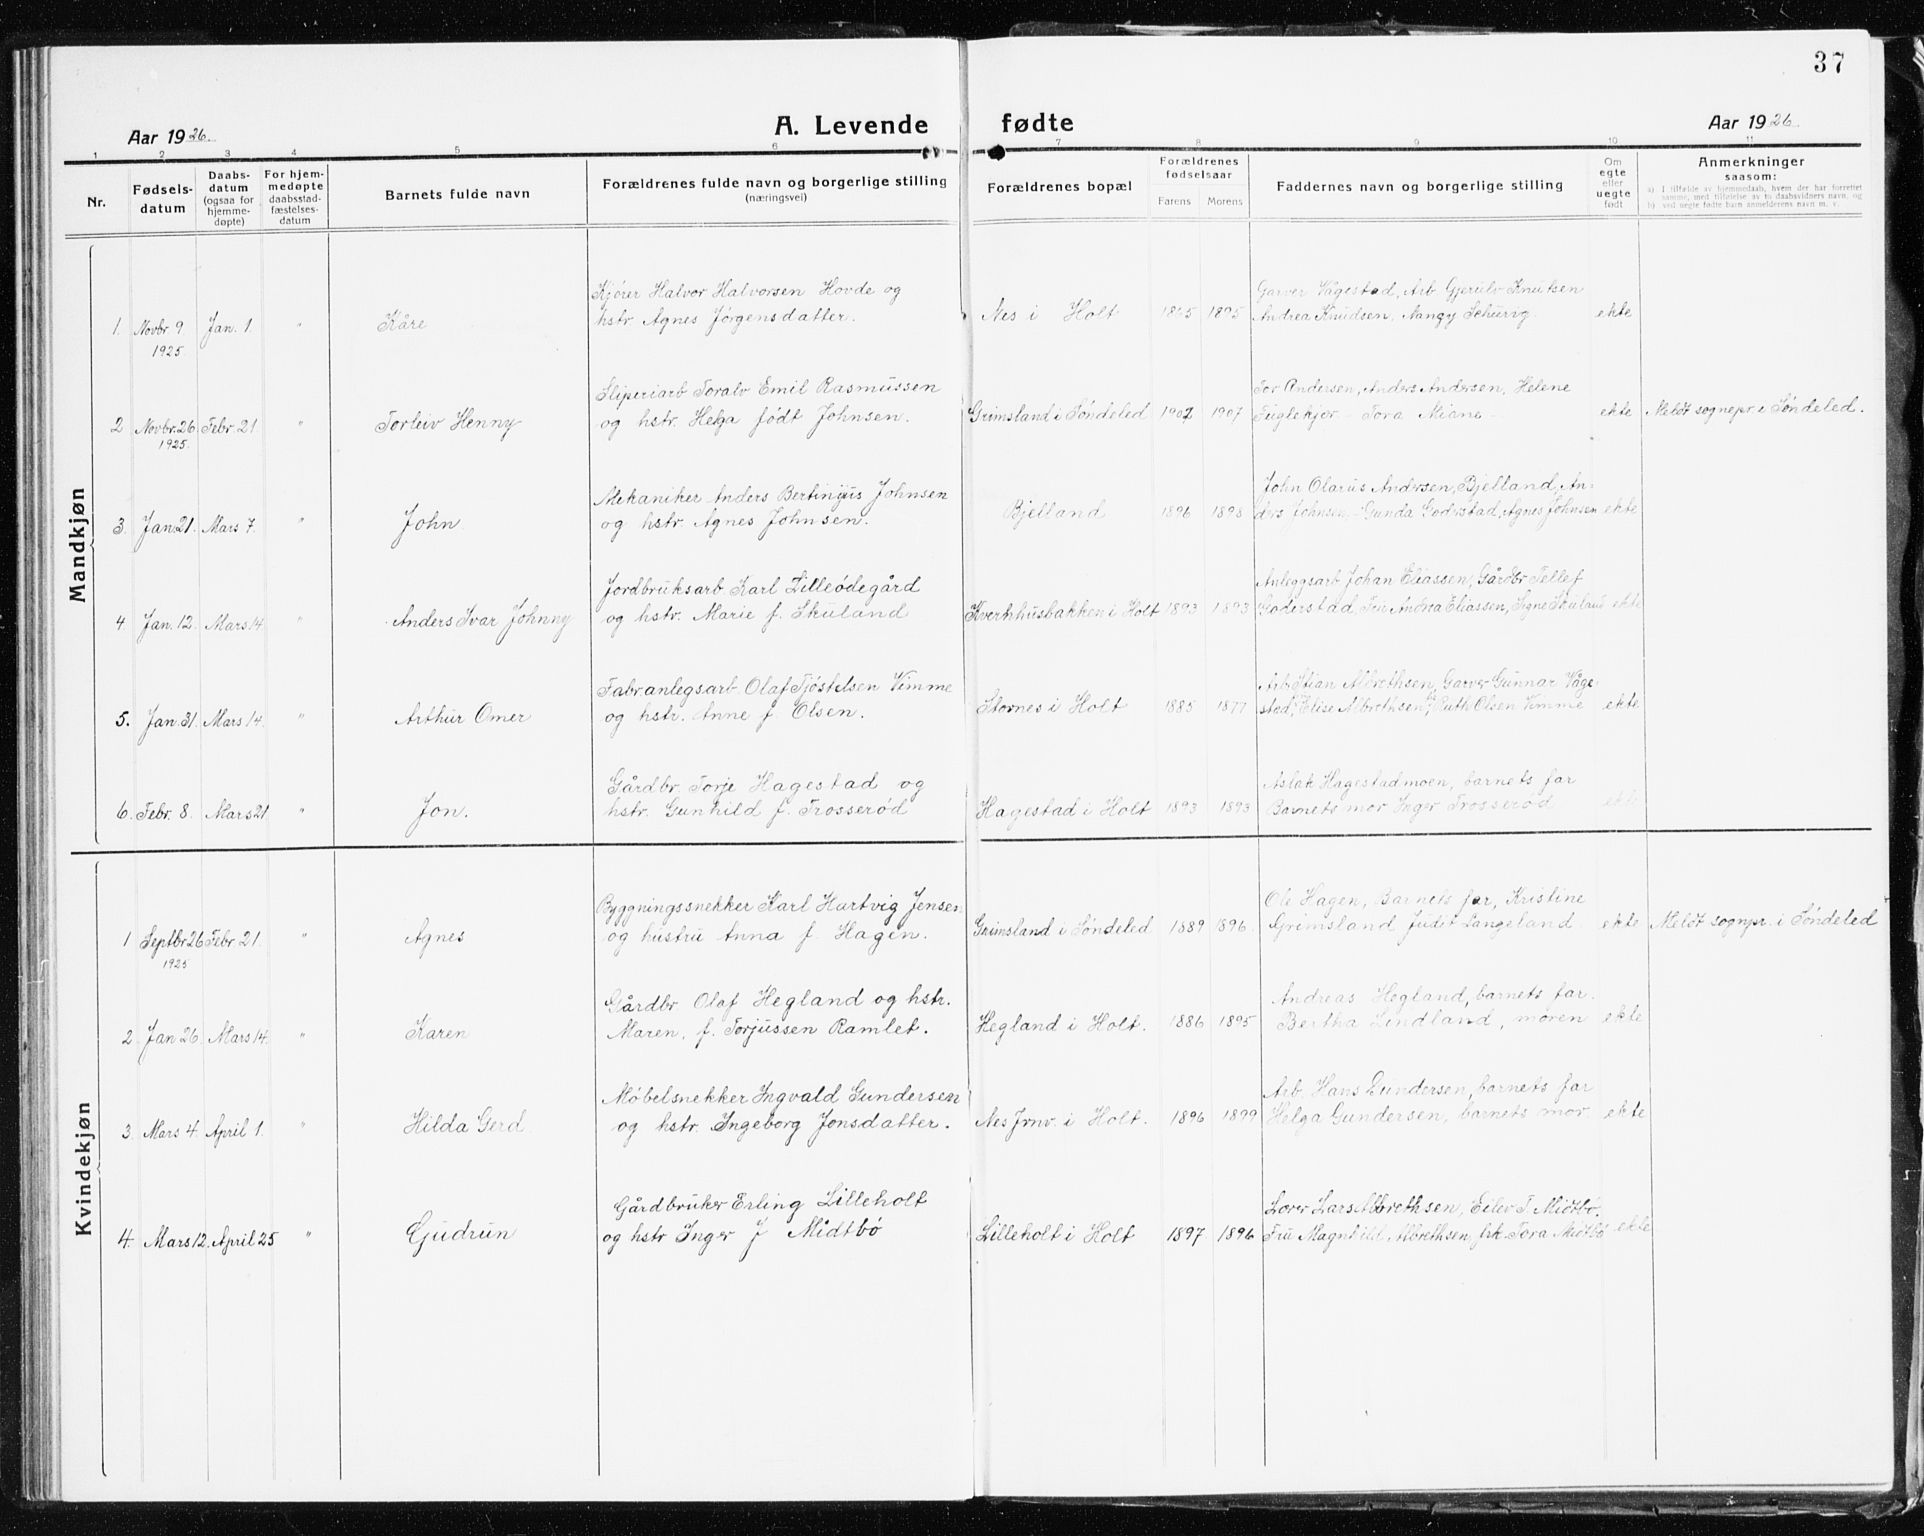 37
Aar 1926.
A. Levende fødte
Aar 1926.
1 2 3 4 5 6 7 8 9 10 11
Nr.
Fødsels-
datum
Daabs-
datum
(ogsaa for
hjemme-
døpte)
For hjem-
medøpte
daabsstad-
fæstelses-
datum
Barnets fulde navn
Forældrenes fulde navn og borgerlige stilling
(næringsvei)
Forældrenes bopæl
Forældrenes
fødselsaar
Farens Morens
Faddernes navn og borgerlige stilling
Om
egte
eller
uegte
født
Anmerkninger
saasom:
a) I tilfælde av hjemmedaab, hvem der har forrettet
samme, med tilføielse av to daabsvidners navn, og
b) ved uegte fødte barn anmelderens navn m. v.
Mandkjøn
Kjører Halvor Halvorsen Hovde og
Garver Vågestad, Arb. Gjerulv Knutsen
1. Novbr 9. Jan. 1. " Kåre hstr Agnes Jørgensdatter. Nes i Holt 1895 Andrea Knudsen, Nangy Schurig. ekte
1925.
Sliperiarb Toralv Emil Rasmussen
Tor Andersen, Anders Andersen, Helene
2 Novbr. 26. Febr. 21 " Torleiv Henny og hstr. Helga født Johnsen. Grimsland i Søndeled 1907 1907 Tora ekte Meldt sognepr. i Søndeled.
1925.
Mekaniker Anders Bertinius Johnsen
John Olarus Andersen, Bjelland, An-
3. Jan. 21. Mars 7. " John og hstr. Agnes Johnsen. Bjelland 1896 1898 ders Johnsen - Gunda Goderstad, Agnes Johnsen ekte
Jordbruksarb. Karl Lilleødegård
Anleggsarb Johan Eliassen, Gårdbr Tellef
4 Jan. 12. Mars 14. " Anders Ivar Johnny og hstr. Marie f. Skuland Kvernhusbakken i Holt 1893 1893 Goderstad, Fru Andrea Eliassen, Signe Skuland ekte
Fabr.anlegsarb. Olaf Tjøstelsen Vimme
Arb. Stian Albrethsen, Garver Gunnar Våge-
5. Jan. 31. Mars 14. " Arthur Omer og hstr. Anne f Olsen. Stornes i Holt 1885 1877 stad, Elise Albrethsen, Ruth Olsen Vimme ekte
Gårdbr. Torje Hagestad og
Aslak Hagestadmoen, barnets far
6. Febr. 8. Mars 21 " Jon. hstr. Gunhild f. Trosserød Hagestad i Holt 1893 1893 Barnets mor Inger Trosserød ekte
Kvindekjøn
Byggningssnekker Karl Hartvig Jensen
Ole Hagen, Barnets far, Kristine
1 Septbr 26 Febr. 21. " Agnes og hustru Anna f. Hagen. Grimsland i Søndeled 1889 1896. Grimsland Judit Langeland. ekte Meldt sognpr. i Søndeled
1925
Gårdbr. Olaf Hegland og hstr.
Andreas Hegland, barnets far.
2. Jan 26. Mars 14. " Karen Maren, f. Torjussen Ramlet. Hegland i Holt. 1886 1895 Bertha Lindland, moren ekte
Møbelsnekker Ingvald Gundersen
Arb. Hans Gundersen, barnets far
3. Mars 4. April 1. " Hilda Gerd. og hstr. Ingeborg Jonsdatter. Nes Jrnv. i Holt. 1896 1899 Helga Gundersen, barnets mor. ekte
Gårdbruker Erling Lilleholt
Lærer Lars Albrethsen, Eilev T. Midtbø.
4. Mars 12. April 25 " Gudrun og hstr Inger J Midtbø Lilleholt i Holt 1897 1896 Fru Magnhild Albrethsen, frk Tora Midtbø ekte